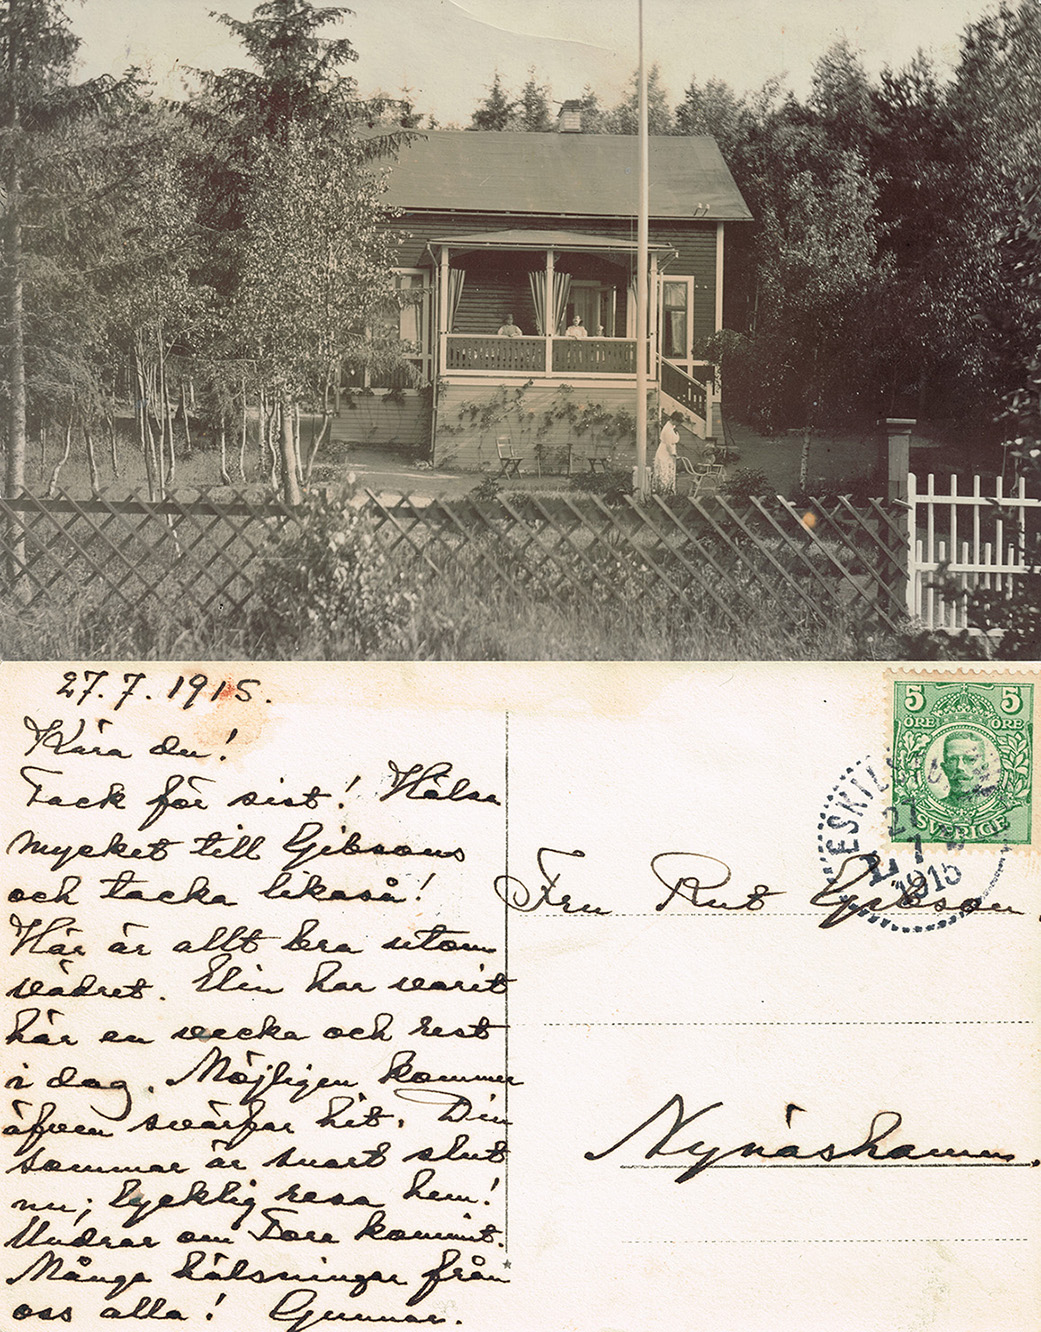 27.7.1915.
Kära du!
Tack för sist! Hälsa
mycket till Gibsons
och tacka likaså!
Här är allt bra utom
vädret. Elin har varit
här en vecka och rest
i dag. Möjligen kommer
äfven svärfar hit. Din
sommar är snart slut
nu; lycklig resa hem!
Undrar om Tore kommit.
Många hälsningar från
oss alla! Gunnar.
5 5
ÖRE ÖRE
SVERIGE
27 7
1915
Fru Rut Gibson.
Nynäshamn.